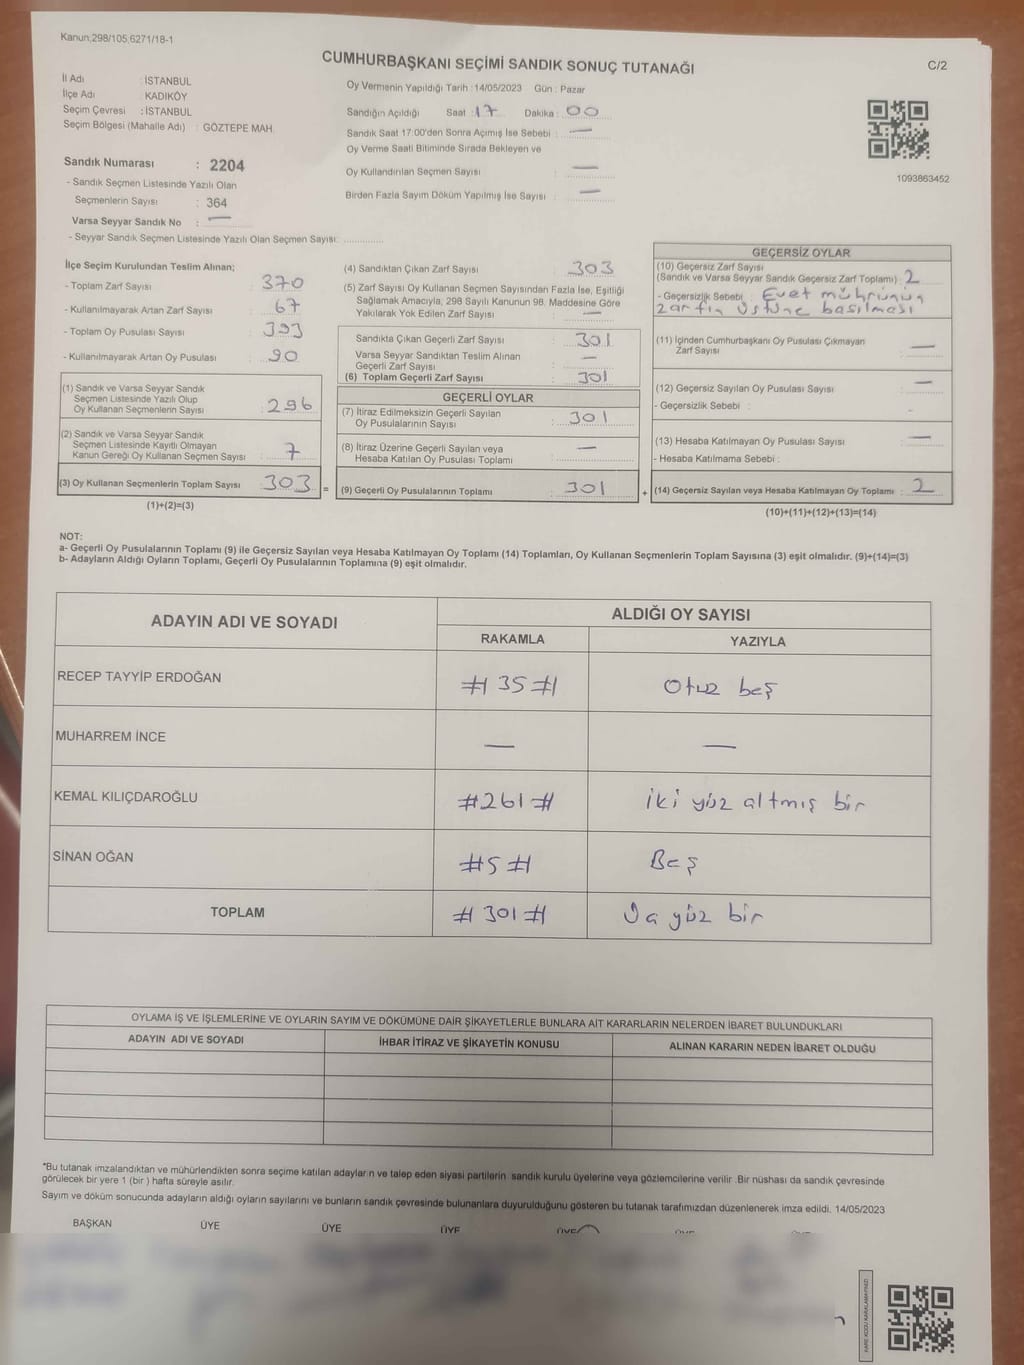 Kanun,298/105,6271/18-1
CUMHURBAŞKANI SEÇİMİ SANDIK SONUÇ TUTANAĞI
C/2
İl Adı : İSTANBUL
İlçe Adı : KADIKÖY
Seçim Çevresi : İSTANBUL
Seçim Bölgesi (Mahalle Adı) : GÖZTEPE MAH.
Oy Vermenin Yapıldığı Tarih : 14/05/2023 Gün : Pazar
Sandığın Açıldığı Saat : 17 Dakika : 00
Sandık Saat 17:00'den Sonra Açımış İse Sebebi : —
Oy Verme Saati Bitiminde Sırada Bekleyen ve
Oy Kullandırılan Seçmen Sayısı : —
Birden Fazla Sayım Döküm Yapılmış İse Sayısı : —
1093863452
Sandık Numarası : 2204
- Sandık Seçmen Listesinde Yazılı Olan
Seçmenlerin Sayısı : 364
Varsa Seyyar Sandık No : —
- Seyyar Sandık Seçmen Listesinde Yazılı Olan Seçmen Sayısı: ..............
İlçe Seçim Kurulundan Teslim Alınan;
- Toplam Zarf Sayısı : 370
- Kullanılmayarak Artan Zarf Sayısı : 67
- Toplam Oy Pusulası Sayısı : 393
- Kullanılmayarak Artan Oy Pusulası : 90
(1) Sandık ve Varsa Seyyar Sandık
Seçmen Listesinde Yazılı Olup
Oy Kullanan Seçmenlerin Sayısı : 296
(2) Sandık ve Varsa Seyyar Sandık
Seçmen Listesinde Kayıtlı Olmayan
Kanun Gereği Oy Kullanan Seçmen Sayısı : 7
(3) Oy Kullanan Seçmenlerin Toplam Sayısı : 303 =
(1)+(2)=(3)
(4) Sandıktan Çıkan Zarf Sayısı : 303
(5) Zarf Sayısı Oy Kullanan Seçmen Sayısından Fazla İse, Eşitliği
Sağlamak Amacıyla, 298 Sayılı Kanunun 98. Maddesine Göre
Yakılarak Yok Edilen Zarf Sayısı : —
Sandıkta Çıkan Geçerli Zarf Sayısı : 301
Varsa Seyyar Sandıktan Teslim Alınan
Geçerli Zarf Sayısı : —
(6) Toplam Geçerli Zarf Sayısı : 301
GEÇERLİ OYLAR
(7) İtiraz Edilmeksizin Geçerli Sayılan
Oy Pusulalarının Sayısı : 301
(8) İtiraz Üzerine Geçerli Sayılan veya
Hesaba Katılan Oy Pusulası Toplamı : —
(9) Geçerli Oy Pusulalarının Toplamı : 301 +
GEÇERSİZ OYLAR
(10) Geçersiz Zarf Sayısı
(Sandık ve Varsa Seyyar Sandık Geçersiz Zarf Toplamı) : 2
- Geçersizlik Sebebi : Evet mührünün
zarfın üstüne basılması
(11) İçinden Cumhurbaşkanı Oy Pusulası Çıkmayan
Zarf Sayısı : —
(12) Geçersiz Sayılan Oy Pusulası Sayısı : —
- Geçersizlik Sebebi :
(13) Hesaba Katılmayan Oy Pusulası Sayısı : —
- Hesaba Katılmama Sebebi :
(14) Geçersiz Sayılan veya Hesaba Katılmayan Oy Toplamı : 2
(10)+(11)+(12)+(13)=(14)
NOT:
a- Geçerli Oy Pusulalarının Toplamı (9) ile Geçersiz Sayılan veya Hesaba Katılmayan Oy Toplamı (14) Toplamları, Oy Kullanan Seçmenlerin Toplam Sayısına (3) eşit olmalıdır. (9)+(14)=(3)
b- Adayların Aldığı Oyların Toplamı, Geçerli Oy Pusulalarının Toplamına (9) eşit olmalıdır.
ADAYIN ADI VE SOYADI
ALDIĞI OY SAYISI
RAKAMLA YAZIYLA
RECEP TAYYİP ERDOĞAN # 35 # Otuz beş
MUHARREM İNCE — —
KEMAL KILIÇDAROĞLU #261# iki yüz altmış bir
SİNAN OĞAN #5# Beş
TOPLAM # 301 # Üç yüz bir
OYLAMA İŞ VE İŞLEMLERİNE VE OYLARIN SAYIM VE DÖKÜMÜNE DAİR ŞİKAYETLERLE BUNLARA AİT KARARLARIN NELERDEN İBARET BULUNDUKLARI
ADAYIN ADI VE SOYADI İHBAR İTİRAZ VE ŞİKAYETİN KONUSU ALINAN KARARIN NEDEN İBARET OLDUĞU
*Bu tutanak imzalandıktan ve mühürlendikten sonra seçime katılan adayların ve talep eden siyasi partilerin sandık kurulu üyelerine veya gözlemcilerine verilir .Bir nüshası da sandık çevresinde
görülecek bir yere 1 (bir ) hafta süreyle asılır.
Sayım ve döküm sonucunda adayların aldığı oyların sayılarını ve bunların sandık çevresinde bulunanlara duyurulduğunu gösteren bu tutanak tarafımızdan düzenlenerek imza edildi. 14/05/2023
BAŞKAN ÜYE ÜYE ÜYE ÜYE
KARE KODU KARALAMAYINIZ!